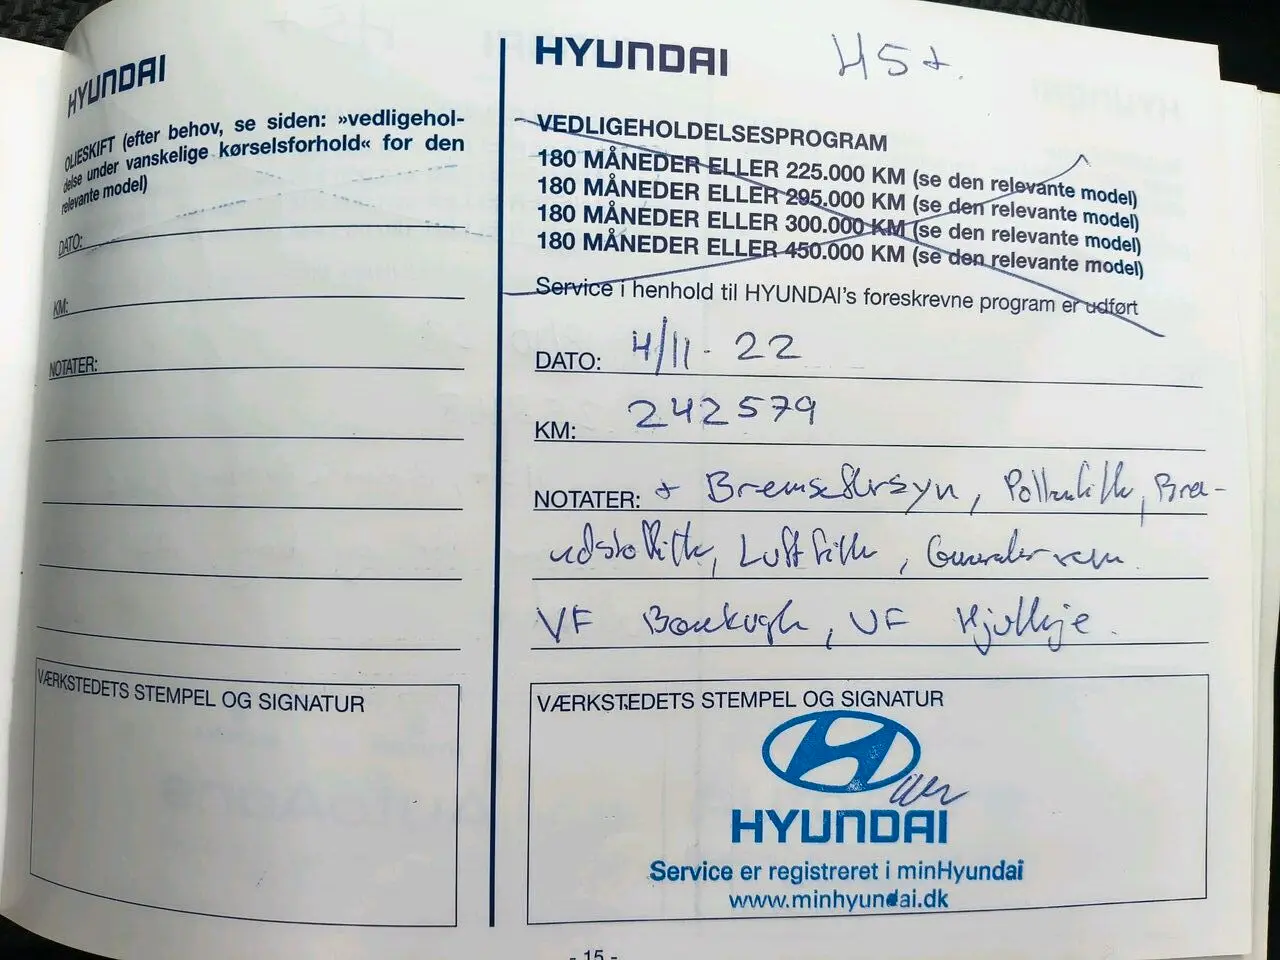 HYUNDAI
OLIESKIFT (efter behov, se siden: »vedligehol-
delse under vanskelige kørselsforhold« for den
relevante model)
DATO:
KM:
NOTATER:
VÆRKSTEDETS STEMPEL OG SIGNATUR
HYUNDAI
H5+.
VEDLIGEHOLDELSESPROGRAM
180 MÅNEDER ELLER 225.000 KM (se den relevante model)
180 MÅNEDER ELLER 295.000 KM (se den relevante model)
180 MÅNEDER ELLER 300.000 KM (se den relevante model)
180 MÅNEDER ELLER 450.000 KM (se den relevante model)
Service i henhold til HYUNDAI's foreskrevne program er udført
DATO: 4/11-22
KM: 242579
NOTATER: + Bremseftersyn, Pollenfilter, Bræ-
ndstoffilter, Luftfilter, Generatorrem.
VF Bærekugle, VF Hjulleje.
VÆRKSTEDETS STEMPEL OG SIGNATUR
HYUNDAI
Service er registreret i minHyundai
www.minhyundai.dk
- 15 -